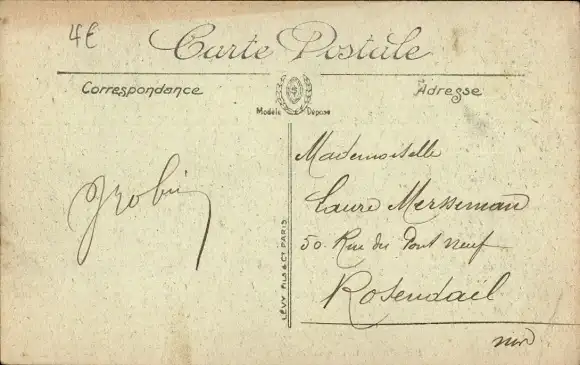 4€
Carte Postale
Correspondance
Adresse
Modèle Déposé
LÉVY FILS & Cie PARIS
Mademoiselle
Laure Mersseman
50 Rue du Pont Neuf
Rosendaël
Nord